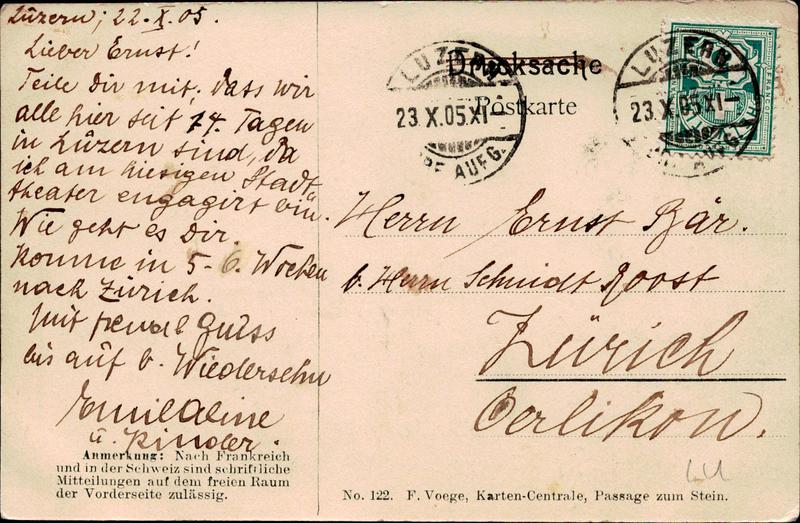 Luzern, 22.X.05.
Lieber Ernst!
Teile Dir mit, dass wir
alle hier seit 14. Tagen
in Luzern sind, da
ich am hiesigen Stadt
theater engagirt bin.
Wie geht es Dir.
Komme in 5-6. Wochen
nach Zürich.
Mit freundl Gruss
bis auf b. Wiedersehn
Emil Aline
u. Kinder.
Anmerkung: Nach Frankreich
und in der Schweiz sind schriftliche
Mitteilungen auf dem freien Raum
der Vorderseite zulässig.
Drucksache
Postkarte
LUZERN
23.X.05.XI-
BRF. AUFG.
LUZERN
23.X.05.XI-
AUFG.
Herrn Ernst Bär.
b. Herrn Schmidt Roost
Zürich
Oerlikon.
LU
No. 122. F. Voege, Karten-Centrale, Passage zum Stein.